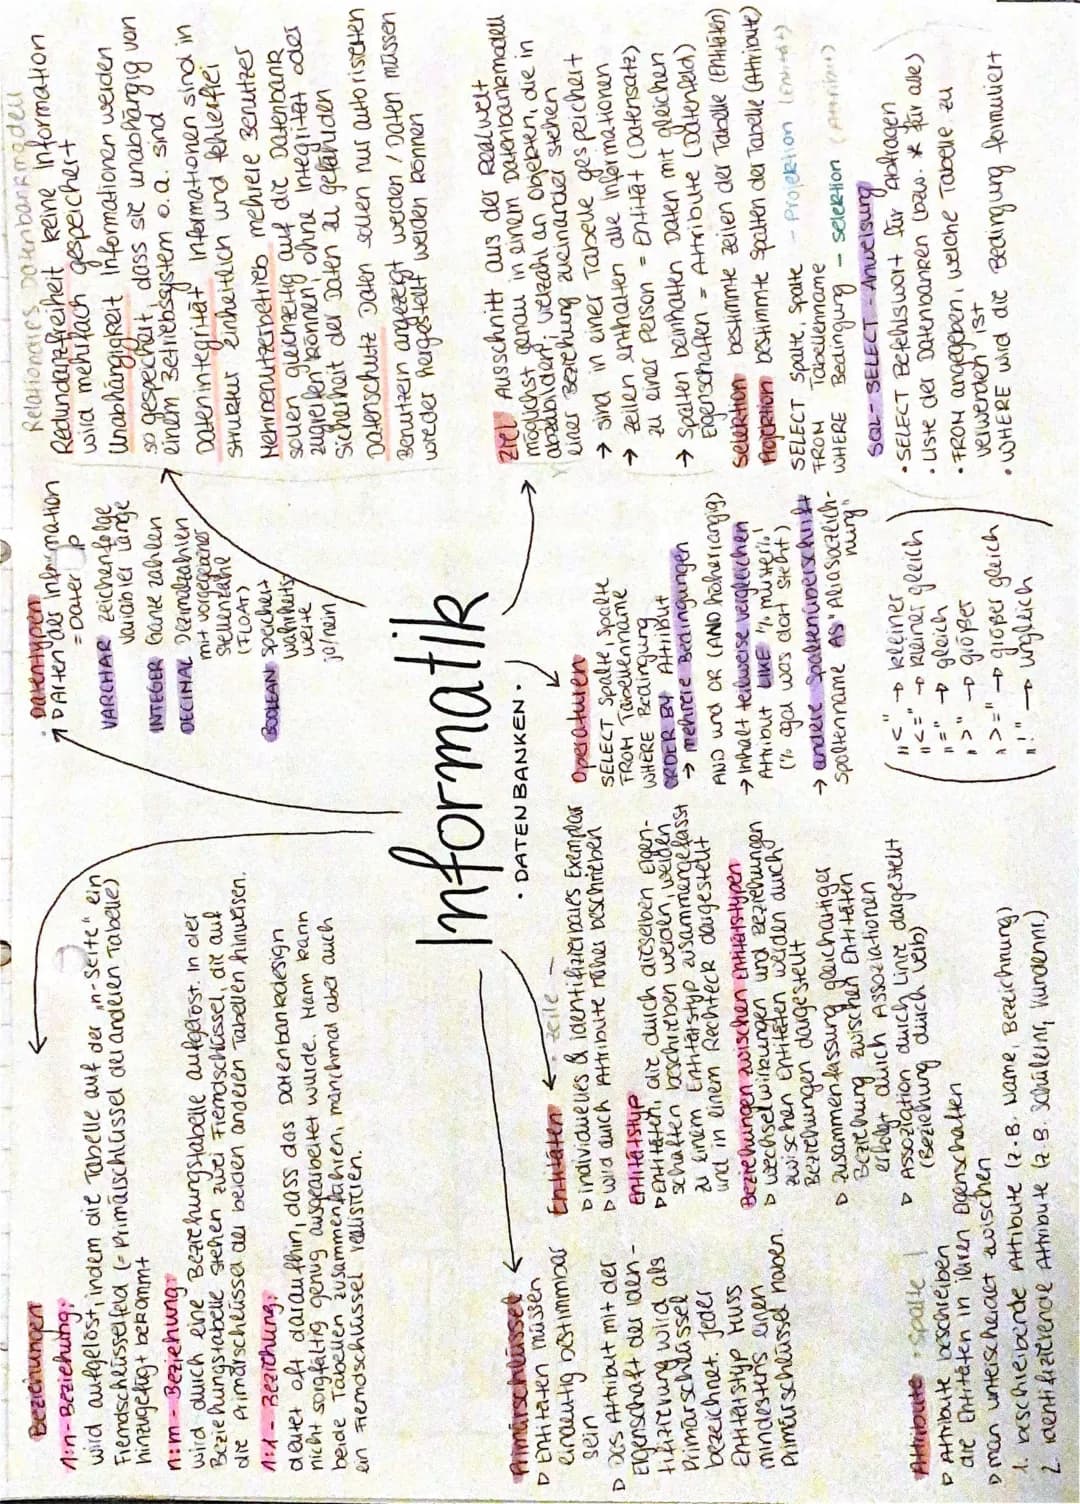 Informatik
· DATENBANKEN ·
Beziehungen
1:n-Beziehung:
wird aufgelöst, indem die Tabelle auf der „n-Seite" ein
Fremdschlüsselfeld (= Primärschlüssel der anderen Tabelle)
hinzugefügt bekommt
n:m - Beziehung:
wird durch eine Beziehungstabelle aufgelöst. In der
Beziehungstabelle stehen zwei Fremdschlüssel, die auf
die Primärschlüssel der beiden anderen Tabellen hinweisen.
1:1 - Beziehung:
deutet oft daraufhin, dass das Datenbankdesign
nicht sorgfältig genug ausgearbeitet wurde. Man kann
beide Tabellen zusammenführen, manchmal aber auch
ein Fremdschlüssel
Datentypen
▷ Arten der Information
= Datentyp
VARCHAR Zeichenfolge
variabler Länge
INTEGER Ganze Zahlen
DECIMAL Dezimalzahlen
mit vorgegebener
Stellenzahl
(FLOAT)
BOOLEAN speichert
Wahrheits
werte
ja/nein
Relationales Datenbankmodell
Redundanzfreiheit keine Information
wird mehrfach gespeichert
Unabhängigkeit Informationen werden
so gespeichert, dass sie unabhängig von
einem Betriebssystem o.a. sind
Datenintegrität Informationen sind in
struktur einheitlich und fehlerfrei
Mehrbenutzerbetrieb mehrere Benutzer
sollen gleichzeitig auf die Datenbank
zugreifen können, ohne Integrität oder
Sicherheit der Daten zu gefährden
Datenschutz Daten sollen nur autorisierten
Benutzern angezeigt werden / Daten müssen
wieder hergestellt werden können
Primärschlüssel
▷ Entitäten müssen
eindeutig bestimmbar
sein
▷ Das Attribut mit der
Eigenschaft der Iden-
tifizierung wird als
Primärschlüssel
bezeichnet. Jeder
Entitätstyp muss
mindestens einen
Primärschlüssel haben.
Entitäten · Zeile -
▷ individuelles & identifizierbares Exemplar
▷ wird durch Attribute näher beschrieben
Entitätstyp
▷ Entitäten, die durch dieselben Eigen-
schaften beschrieben werden, werden
zu einem Entitätstyp zusammengefasst
und in einem Rechteck dargestellt
Beziehungen zwischen Entitätstypen
▷ Wechselwirkungen und Beziehungen
zwischen Entitäten werden durch
Beziehungen dargestellt
▷ Zusammenfassung gleichartiger
Beziehung zwischen Entitäten
erfolgt durch Assoziationen
▷ Assoziation durch Linie dargestellt
(Beziehung durch Verb)
Attribute · Spalte |
▷ Attribute beschreiben
die Entitäten in ihren Eigenschaften
▷ man unterscheidet zwischen
1. beschreibende Attribute (z.B. Name, Bezeichnung)
2. identifizierende Attribute (z.B. Schülernr, Kundennr.)
Operatoren
SELECT Spalte, Spalte
FROM Tabellenname
WHERE Bedingung
ORDER BY Attribut
→ mehrere Bedingungen
AND und OR (AND höherrangig)
→ Inhalt teilweise vergleichen
Attribut LIKE '% muster%'
(% egal was dort steht)
→ andere Spaltenüberschrift
Spaltenname AS
„<" → kleiner
„<=" → kleiner gleich
„=" → gleich
„>" → größer
„>=" → größer gleich
„!" → ungleich
Ziel Ausschnitt aus der Realwelt
möglichst genau in einem Datenbankmodell
abzubilden; Vielzahl an Objekten, die in
einer Beziehung zueinander stehen
→ sind in einer Tabelle gespeichert
→ Zeilen enthalten alle Informationen
zu einer Person = Entität (Datensatz)
→ Spalten beinhalten Daten mit gleichen
Eigenschaften = Attribute (Datenfeld)
Selektion bestimmte Zeilen der Tabelle (Entitäten)
Projektion bestimmte Spalten der Tabelle (Attribute)
SELECT Spalte, Spalte - Projektion
FROM Tabellenname
WHERE Bedingung - Selektion
SQL - SELECT - Anweisung
· SELECT Befehlswort für Abfragen
· Liste der Datenbanken (bzw. * für alle)
· FROM angegeben, welche Tabelle zu
verwenden ist
· WHERE wird die Bedingung formuliert